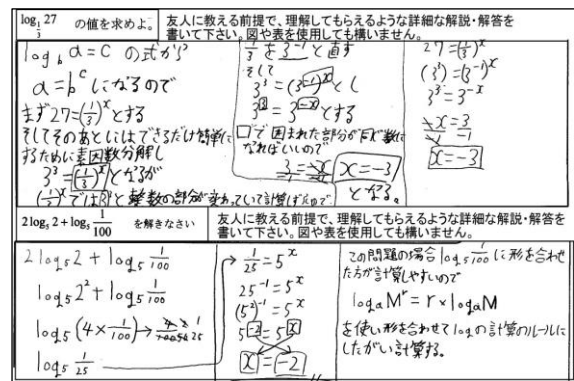 log_{1/3} 27 の値を求めよ。
友人に教える前提で、理解してもらえるような詳細な解説・解答を
書いて下さい。図や表を使用しても構いません。
log_b a = C の式から
a = b^c になるので
まず 27 = (1/3)^x とする
そしてそのあとにはできるだけ簡単に
するために素因数分解し
3^3 = (1/3)^x となるが
(1/3)^x では
1/3 を 3^{-1} と直す
そして
3^3 = (3^{-1})^x とし
3^3 = 3^{-x} とする
□で囲まれた部分が同じ数に
なればいいので
3 = -x
x = -3
となる。
27 = (1/3)^x
(3^3) = (3^{-1})^x
3^3 = 3^{-x}
-x/-1 = 3/-1
x = -3
2 log_5 2 + log_5 1/100 を解きなさい
友人に教える前提で、理解してもらえるような詳細な解説・解答を
書いて下さい。図や表を使用しても構いません。
2 log_5 2 + log_5 1/100
log_5 2^2 + log_5 1/100
log_5 (4 × 1/100) →
log_5 1/25
→ 1/25 = 5^x
25^{-1} = 5^x
(5^2)^{-1} = 5^x
5^{-2} = 5^x
x = -2
この問題の場合 log_5 1/100 に形を合わせ
た方が計算しやすいので
log_a M^r = r × log_a M
を使い形を合わせて log の計算のルールに
したがい計算する。